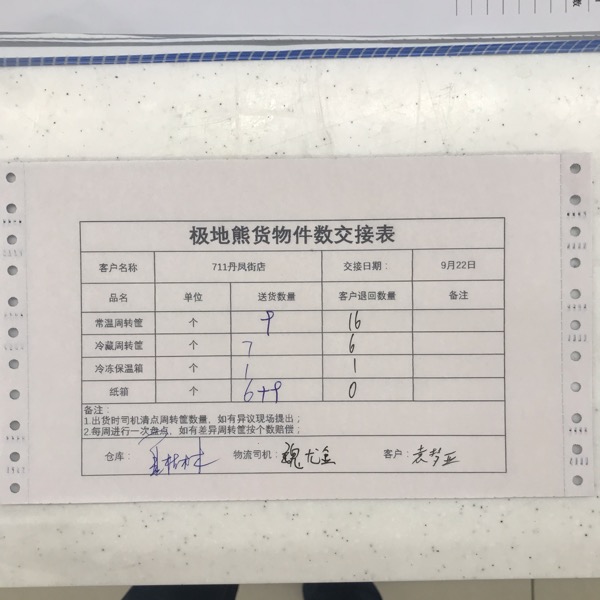 极地熊货物件数交接表
客户名称 711丹凤街店 交接日期： 9月22日
品名 单位 送货数量 客户退回数量 备注
常温周转筐 个 9 16
冷藏周转筐 个 7 6
冷冻保温箱 个 1 1
纸箱 个 6+9 0
备注：
1.出货时司机清点周转筐数量，如有异议现场提出；
2.每周进行一次盘点，如有差异周转筐按个数赔偿；
仓库： 物流司机：魏尤金 客户：袁梦亚